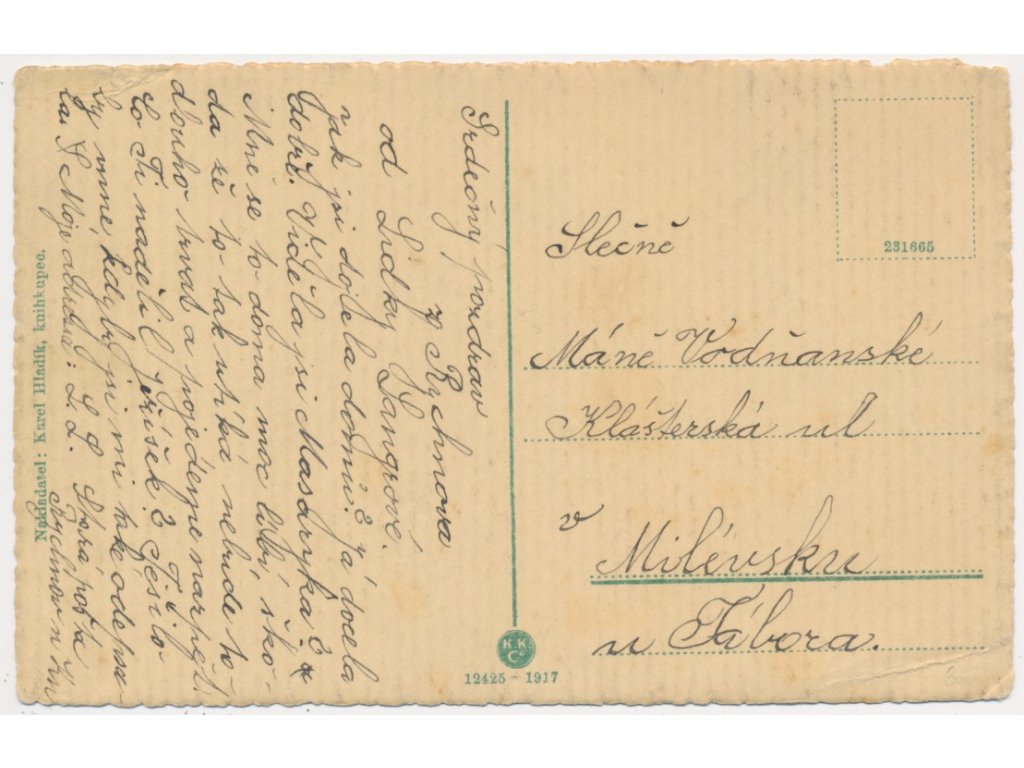 Srdečný pozdrav
z Rychnova
od Lidky Langrové.
jak jsi dojela domů? já docela
dobře. Viděla jsi Masaryka?
Mně se to doma moc líbí, ško-
da že to tak utíká nebude to
dlouho trvat a pojedeme narpět.
Co Ti nadělil Ježíšek? Těšilo-
by mne kdyby jsi mi také odepsa
la. Moje adresa: L. L.
Rychnov n
Nakladatel: Karel Hladík, knihkupec.
231665
Slečně
Máně Vodňanské
Klášterská ul
v
Milévsku
u Tábora.
K K
Co
12425 - 1917